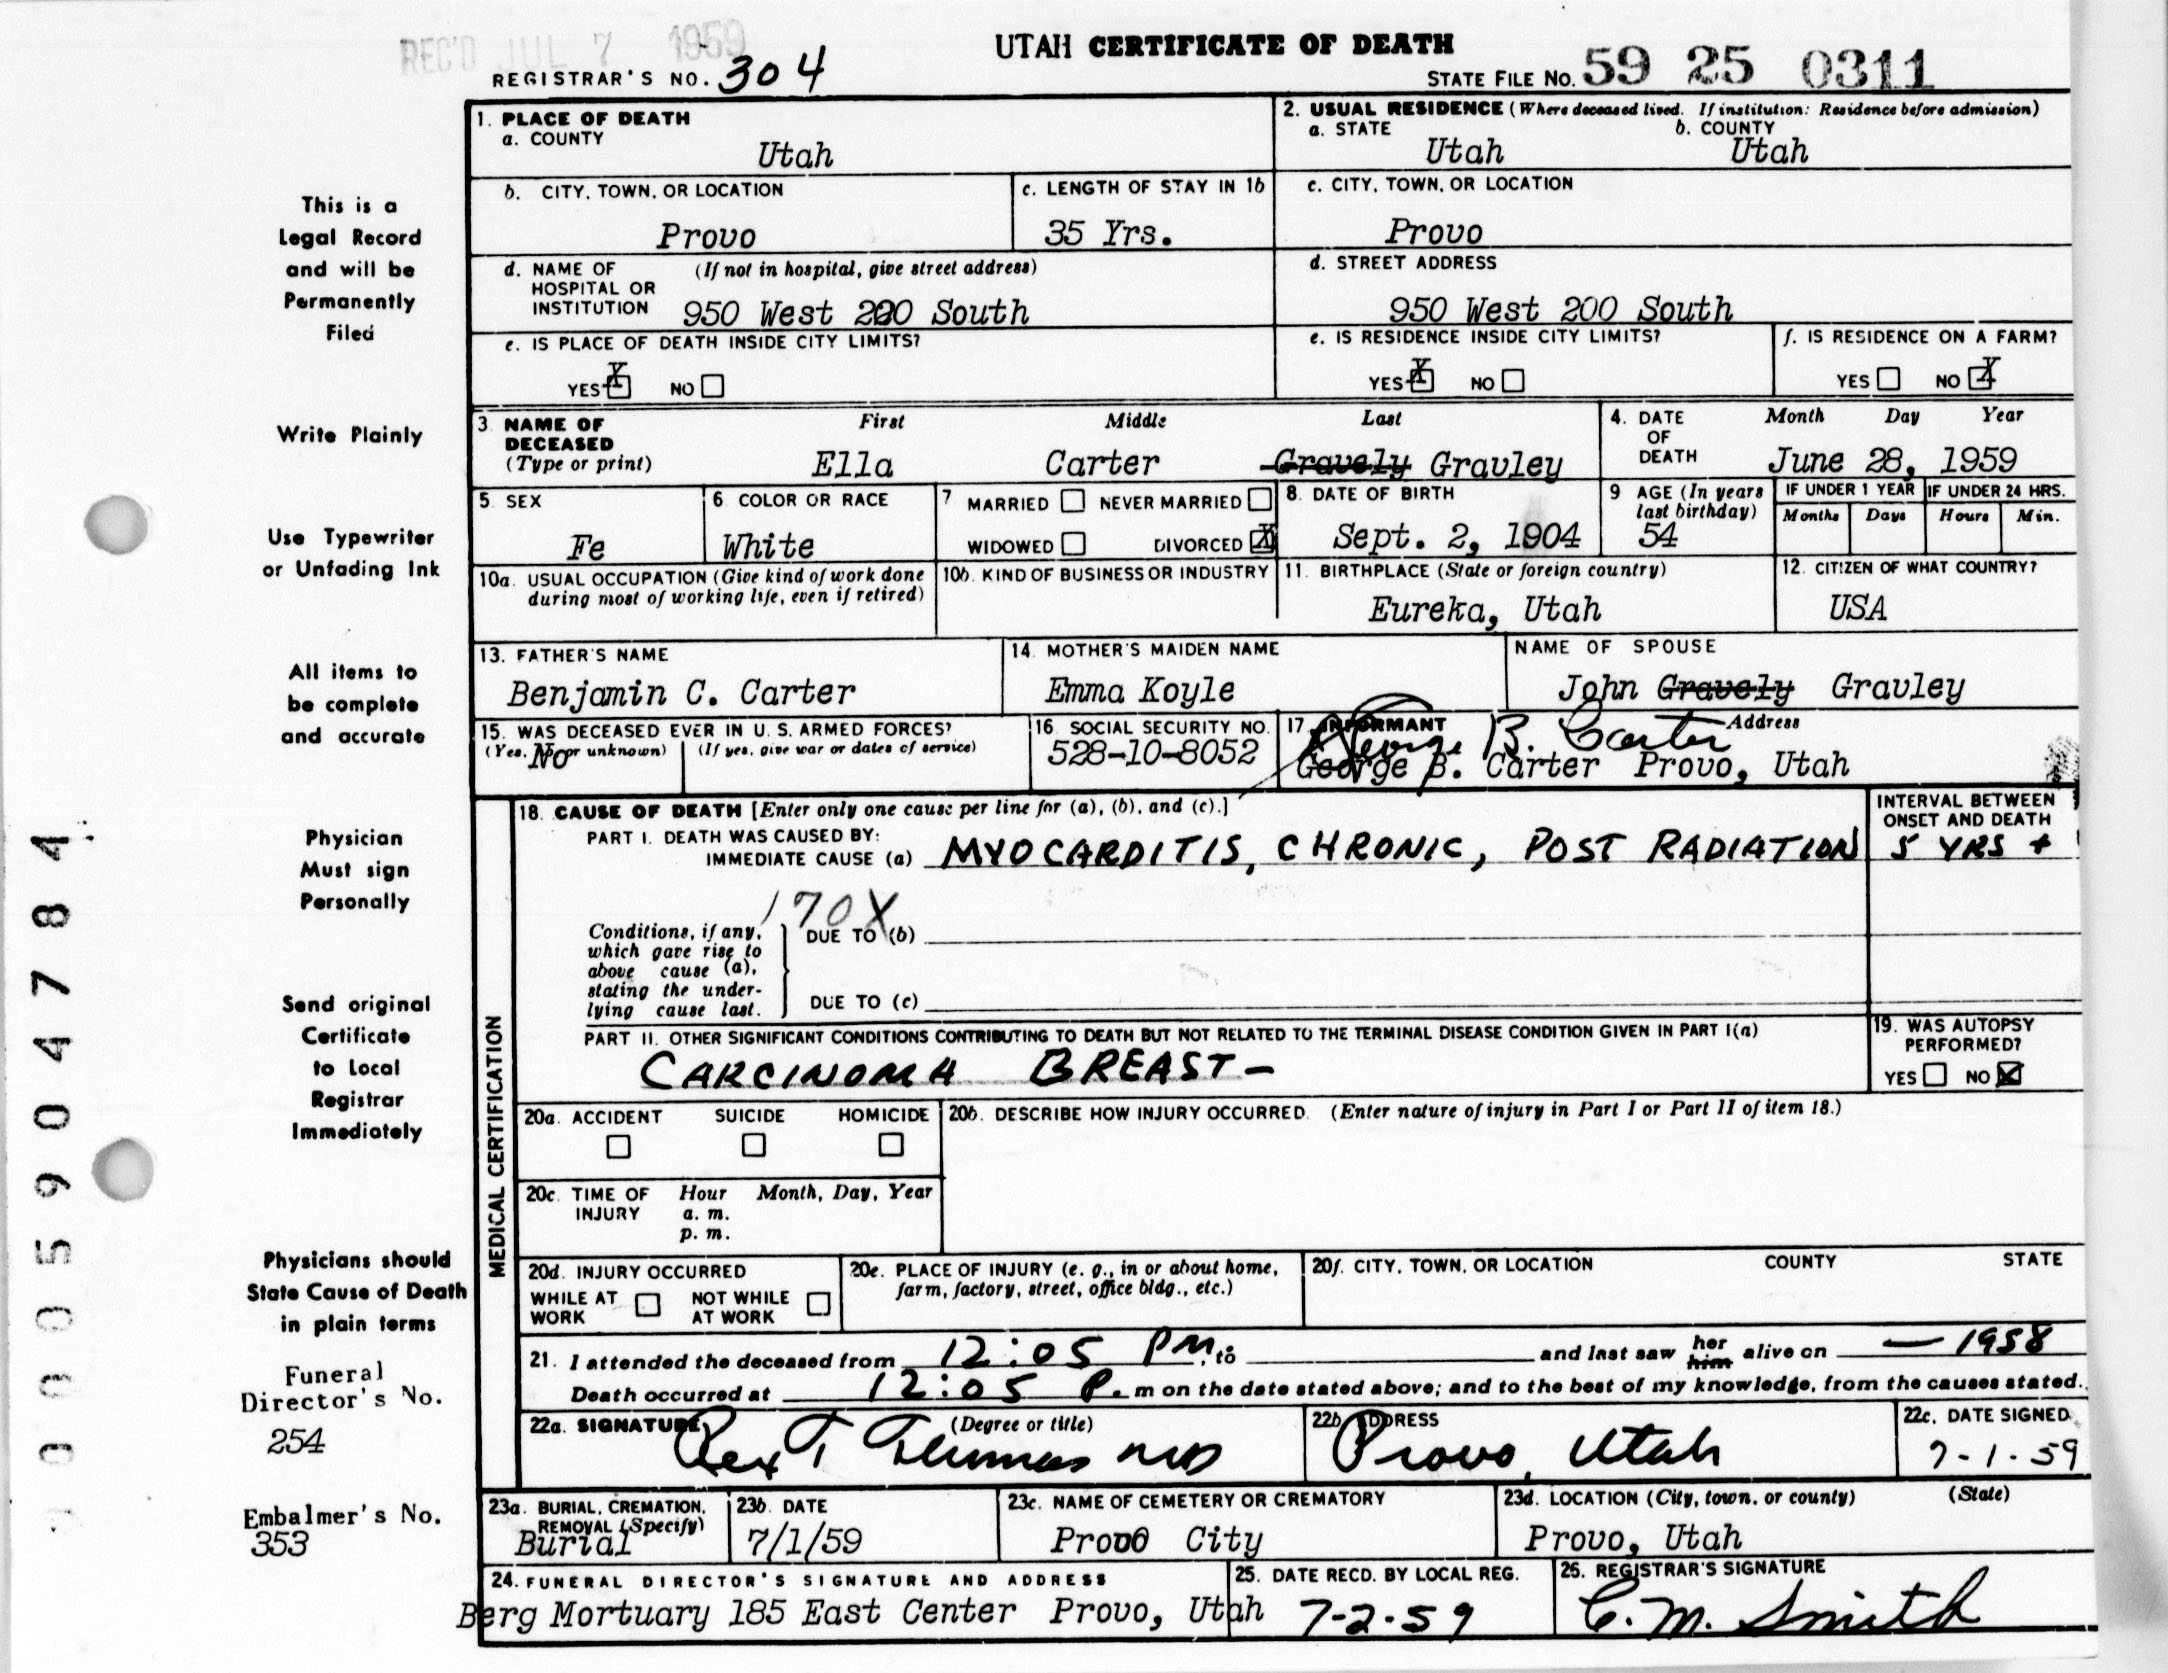 REC'D JUL 7 1959
UTAH CERTIFICATE OF DEATH
REGISTRAR'S NO. 304
STATE FILE NO. 59 25 0311
1. PLACE OF DEATH
a. COUNTY
Utah
2. USUAL RESIDENCE (Where deceased lived. If institution: Residence before admission)
a. STATE b. COUNTY
Utah Utah
b. CITY, TOWN, OR LOCATION
Provo
c. LENGTH OF STAY IN 1b
35 Yrs.
c. CITY, TOWN, OR LOCATION
Provo
d. NAME OF (If not in hospital, give street address)
HOSPITAL OR
INSTITUTION 950 West 200 South
d. STREET ADDRESS
950 West 200 South
e. IS PLACE OF DEATH INSIDE CITY LIMITS?
YES X NO
e. IS RESIDENCE INSIDE CITY LIMITS?
YES X NO
f. IS RESIDENCE ON A FARM?
YES NO X
3 NAME OF DECEASED
(Type or print)
First Middle Last
Ella Carter Gravely Gravley
4. DATE OF DEATH
Month Day Year
June 28, 1959
5. SEX
Fe
6 COLOR OR RACE
White
7 MARRIED NEVER MARRIED
WIDOWED DIVORCED X
8. DATE OF BIRTH
Sept. 2, 1904
9 AGE (In years
last birthday)
54
IF UNDER 1 YEAR IF UNDER 24 HRS.
Months Days Hours Min.
10a. USUAL OCCUPATION (Give kind of work done
during most of working life, even if retired)
10b. KIND OF BUSINESS OR INDUSTRY
11. BIRTHPLACE (State or foreign country)
Eureka, Utah
12. CITIZEN OF WHAT COUNTRY?
USA
13. FATHER'S NAME
Benjamin C. Carter
14. MOTHER'S MAIDEN NAME
Emma Koyle
NAME OF SPOUSE
John Gravely Gravley
15. WAS DECEASED EVER IN U. S. ARMED FORCES?
(Yes, No or unknown) (If yes, give war or dates of service)
No
16. SOCIAL SECURITY NO.
528-10-8052
17. INFORMANT Address
George B. Carter
George B. Carter Provo, Utah
18. CAUSE OF DEATH [Enter only one cause per line for (a), (b), and (c).]
INTERVAL BETWEEN
ONSET AND DEATH
PART I. DEATH WAS CAUSED BY:
IMMEDIATE CAUSE (a) MYOCARDITIS, CHRONIC, POST RADIATION 5 YRS +
170X
Conditions, if any,
which gave rise to
above cause (a),
stating the under-
lying cause last.
DUE TO (b)
DUE TO (c)
PART II. OTHER SIGNIFICANT CONDITIONS CONTRIBUTING TO DEATH BUT NOT RELATED TO THE TERMINAL DISEASE CONDITION GIVEN IN PART I(a)
CARCINOMA BREAST -
19. WAS AUTOPSY
PERFORMED?
YES NO X
20a. ACCIDENT SUICIDE HOMICIDE
20b. DESCRIBE HOW INJURY OCCURRED. (Enter nature of injury in Part I or Part II of item 18.)
20c. TIME OF INJURY
Hour Month, Day, Year
a. m.
p. m.
20d. INJURY OCCURRED
WHILE AT WORK
NOT WHILE AT WORK
20e. PLACE OF INJURY (e. g., in or about home,
farm, factory, street, office bldg., etc.)
20f. CITY, TOWN, OR LOCATION COUNTY STATE
21. I attended the deceased from 12:05 PM, to and last saw her him alive on — 1958
Death occurred at 12:05 P. m on the date stated above; and to the best of my knowledge, from the causes stated.
22a. SIGNATURE (Degree or title)
Rex T Thomas MD
22b. ADDRESS
Provo, Utah
22c. DATE SIGNED
7-1-59
MEDICAL CERTIFICATION
23a. BURIAL, CREMATION,
REMOVAL (Specify)
Burial
23b. DATE
7/1/59
23c. NAME OF CEMETERY OR CREMATORY
Provo City
23d. LOCATION (City, town, or county) (State)
Provo, Utah
24. FUNERAL DIRECTOR'S SIGNATURE AND ADDRESS
Berg Mortuary 185 East Center Provo, Utah
25. DATE RECD. BY LOCAL REG.
7-2-59
26. REGISTRAR'S SIGNATURE
C. M. Smith
This is a
Legal Record
and will be
Permanently
Filed
Write Plainly
Use Typewriter
or Unfading Ink
All items to
be complete
and accurate
Physician
Must sign
Personally
Send original
Certificate
to Local
Registrar
Immediately
Physicians should
State Cause of Death
in plain terms
Funeral
Director's No.
254
Embalmer's No.
353
005904784